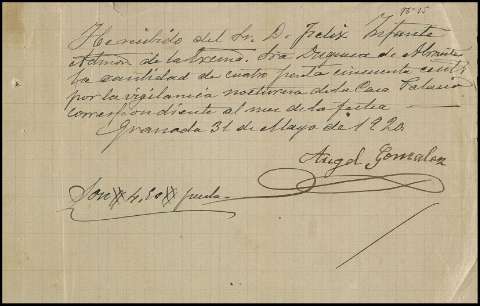 He recibido del Sr. D. Felix Infante
Admor de la Excma. Sra Duquesa de Abrantes
la cantidad de cuatro pesetas cincuenta cents
por la vigilancia nocturna de la Casa Palacio
correspondiente al mes de la fecha
Granada 31 de Mayo de 1920.
Angel Gonzalez
Son # 4,50 # pesetas